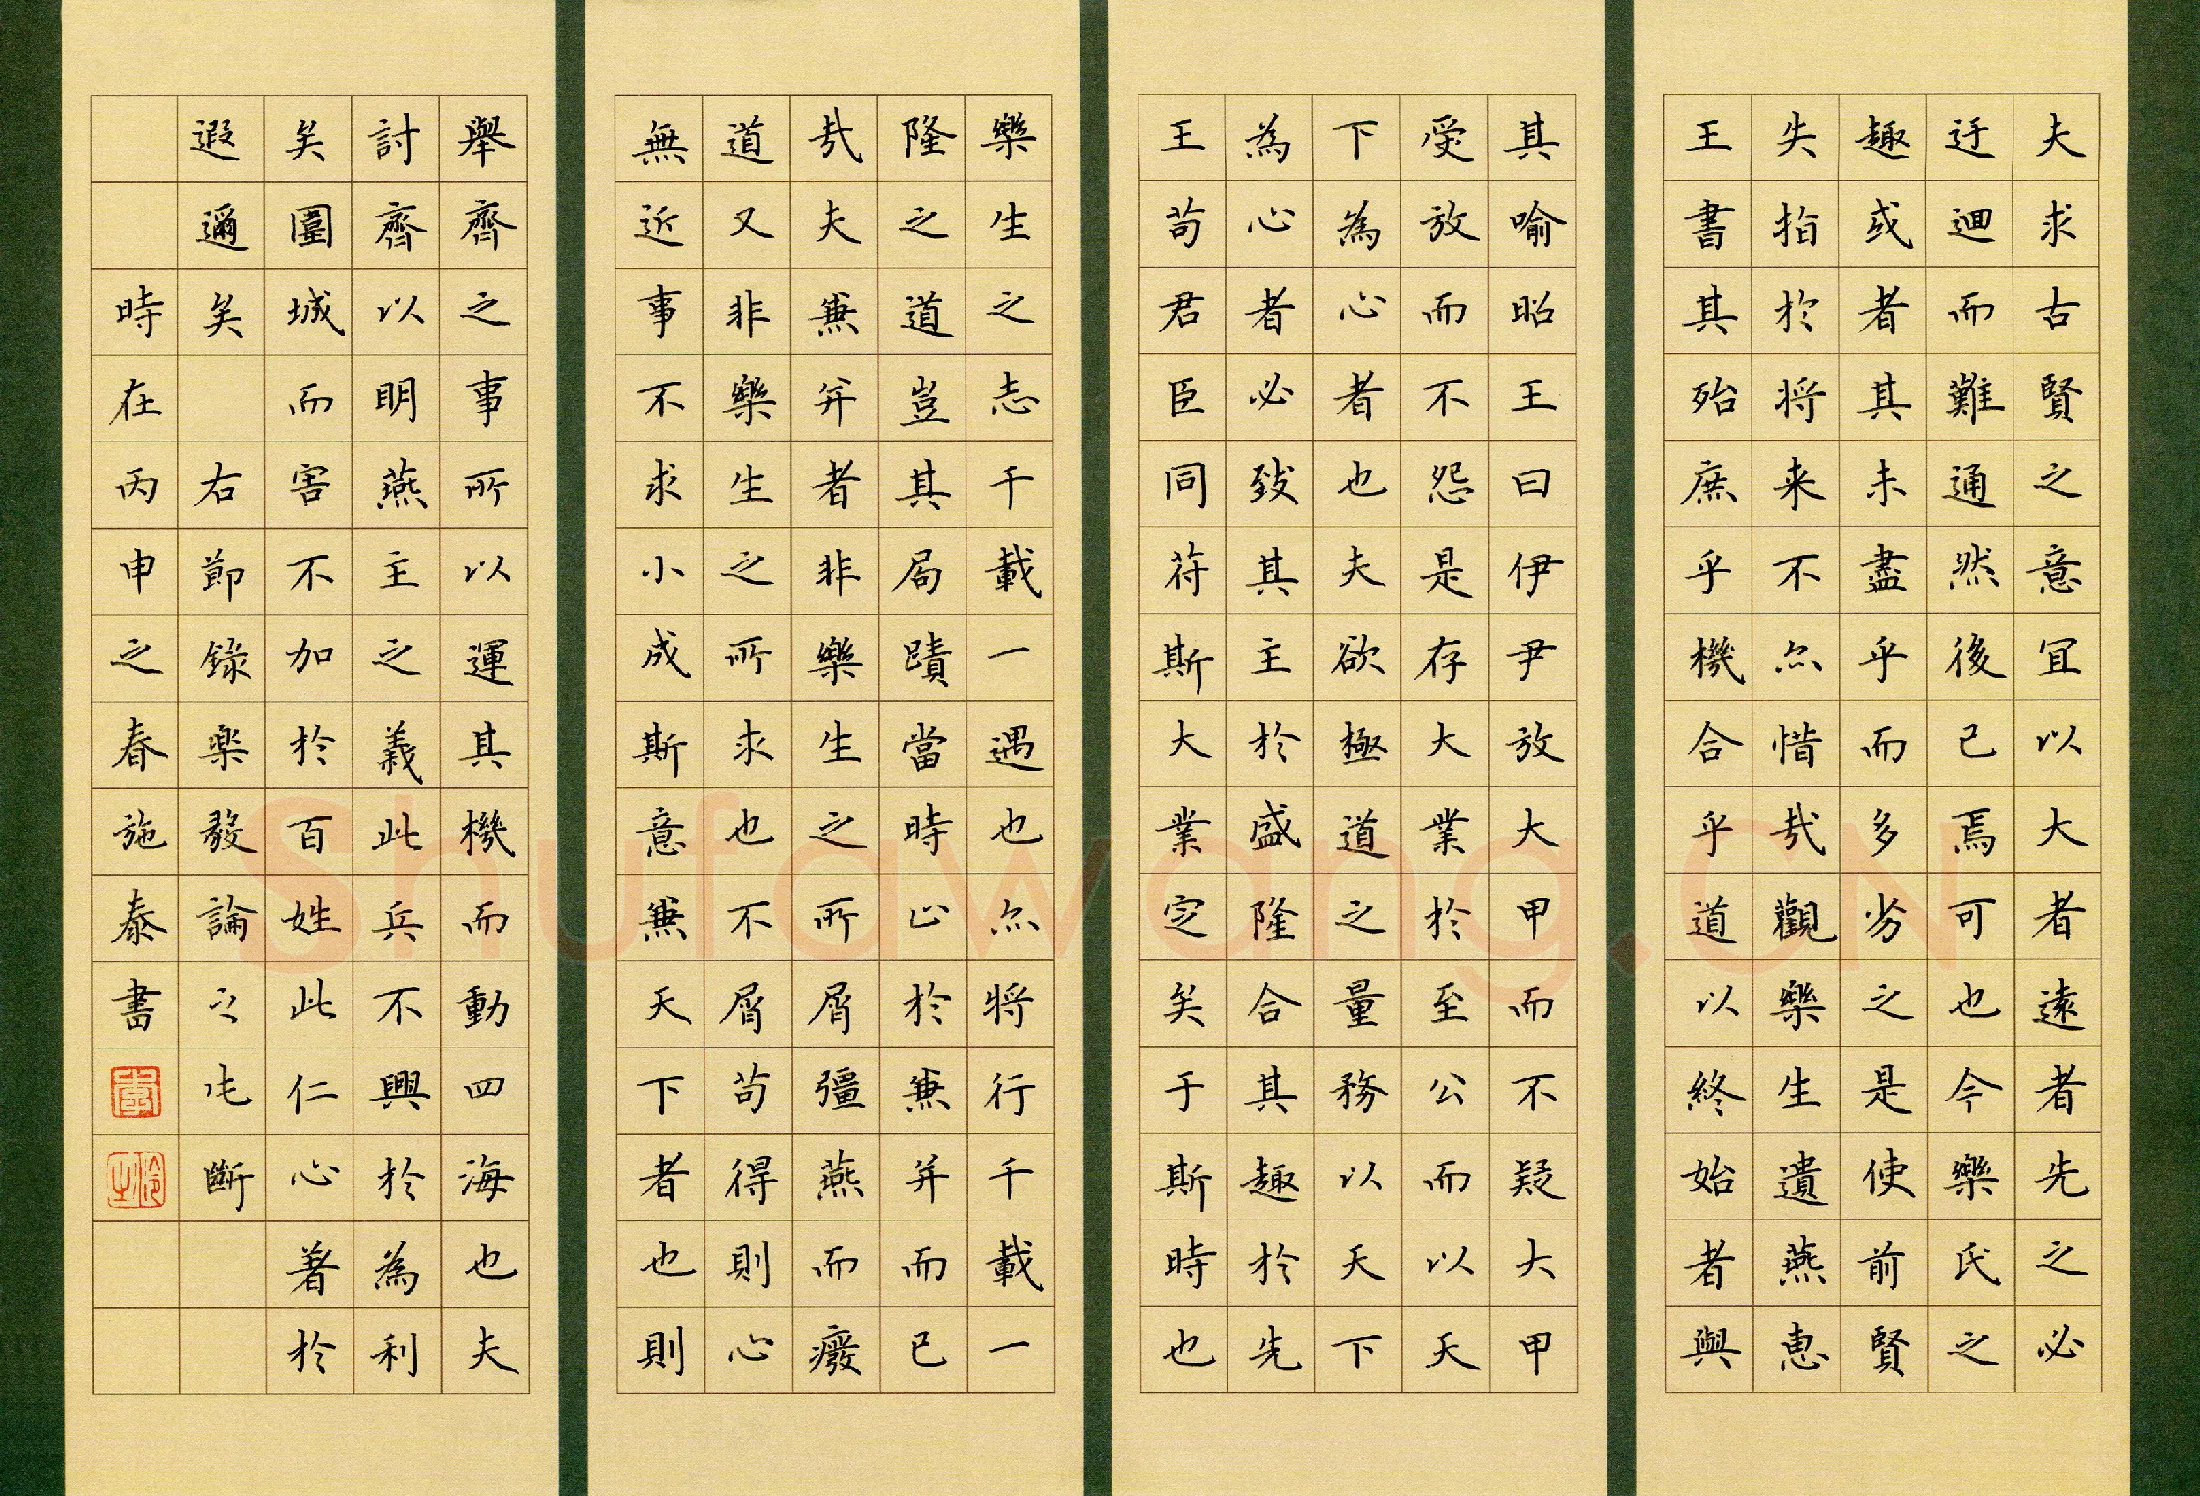 夫求古賢之意宜以大者遠者先之必
迂迴而難通然後已焉可也今樂氏之
趣或者其未盡乎而多劣之是使前賢
失指於将来不尒惜哉觀樂生遺燕惠
王書其殆庶乎機合乎道以終始者與
其喻昭王曰伊尹放大甲而不疑大甲
受放而不怨是存大業於至公而以天
下為心者也夫欲極道之量務以天下
為心者必致其主於盛隆合其趣於先
王苟君臣同苻斯大業定矣于斯時也
樂生之志千載一遇也尒将行千載一
隆之道豈其局蹟當時止於兼并而已
哉夫兼并者非樂生之所屑彊燕而癈
道又非樂生之所求也不屑苟得則心
無近事不求小成斯意兼天下者也則
舉齊之事所以運其機而動四海也夫
討齊以明燕主之義此兵不興於為利
矣圍城而害不加於百姓此仁心著於
遐邇矣 右節錄樂毅論之片斷
時在丙申之春施泰書
Shufawang.CN